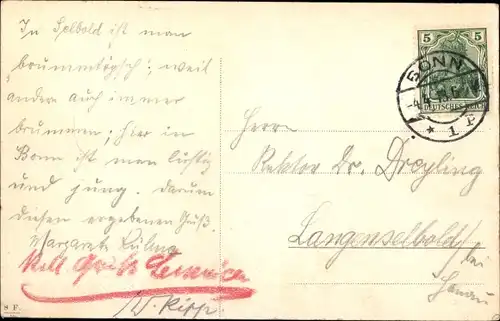 In Selbold ist man
brummtöpsch; weil
andern auch immer
brummen; hier in
Bonn ist man lustig
und jung. darum
diesen ergebenen Gruß.
Margarete
W. Ripp.
S F.
5 5
BONN
DEUTSCHES REICH
* 1 F
Herrn
Rektor Dr. Dreyling
Langenselbold/
bei
Hanau